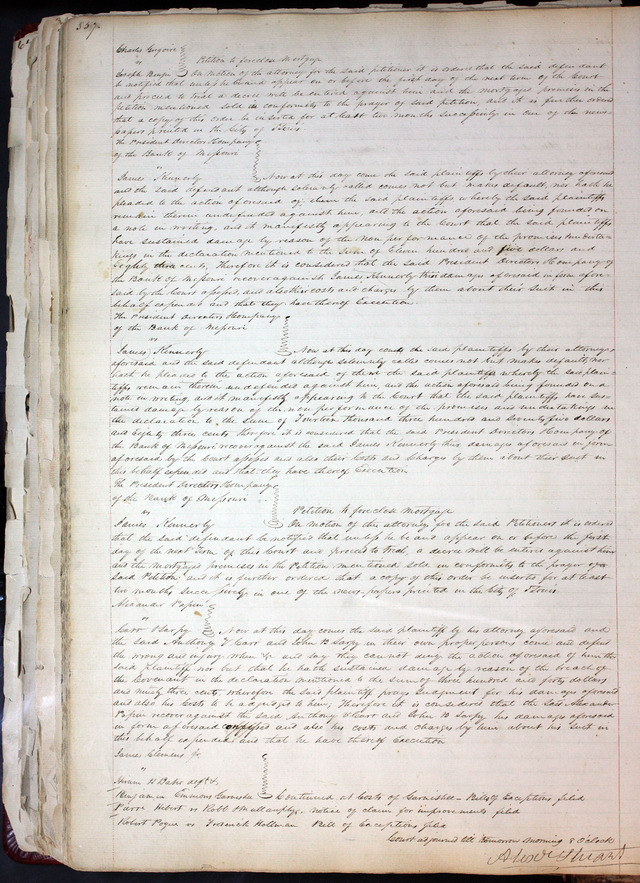 337.
Charles Gregoire
"
Petition to foreclose Mortgage
Joseph On Motion of the attorney for the said petitioner it is ordered that the said defendant
be notified that unless he be and appear on or before the first day of the next term of this Court
and proceed to trial a decree will be entered against him and the mortgaged premises in the
petition mentioned sold in conformity to the prayer of said petition, and it is further ordered
that a copy of this order be inserted for at least two months successively in one of the news-
papers printed in the City of St Louis
The President Directors & Company
of the Bank of Missouri
vs
James Kennerly Now at this day come the said plaintiffs by their attorney aforesaid
and the said defendant although solemnly called comes not but makes default, nor hath he
pleaded to the action aforesaid of them the said plaintiffs whereby the said plaintiffs
remain therein undefended against him, and the action aforesaid being founded on
a note in writing, and it manifestly appearing to the Court that the said plaintiffs
have sustained damage by reason of the non performance of the promises and underta-
kings in the declaration mentioned to the Sum of Eleven hundred and five dollars and
Eighty three cents, Therefore it is considered that the Said President Directors & Company of
the Bank of Missouri recover against James Kennerly their damages aforesaid in form afore-
said by the Court assessed, and also their costs and charges by them about their Suit in this
behalf expended and that they have thereof Execution.
The President directors & Company
of the Bank of Missouri
vs
James Kennerly Now at this day comes the said plaintiffs by their attorney
aforesaid and the said defendant although solemnly called comes not but makes default, nor
hath he pleaded to the action aforesaid of them the said plaintiffs whereby the said plain-
tiffs remain therein undefended against him, and the action aforesaid being founded on a
note in writing, and it manifestly appearing to the Court that the said plaintiffs have sus-
tained damage by reason of the non performance of the promises and undertakings in
the declaration to the Sum of Fourteen thousand three hundred and Seventy five dollars
and Eighty three cents, Therefore it is considered that the Said President Directors & Company of
the Bank of Missouri recover against the said James Kennerly their damages aforesaid in form
aforesaid by the Court assessed and also their costs and charges by them about their Suit in
this behalf expended and that they have thereof Execution
The President Directors & Company
of the Bank of Missouri
vs Petition to foreclose Mortgage
James Kennerly On Motion of the attorney for the said Petitioners it is ordered
that the said defendant be notified that unless he be and appear on or before the first
day of the next term of this Court and proceed to trial, a decree will be entered against him
and the Mortgaged premises in the Petition mentioned sold in conformity to the prayer of
Said Petition and it is further ordered that a copy of this order be inserted for at least
two months successively in one of the news papers printed in the City of St Louis.
Alexander Papin
"
Carr & Sarpy Now at this day comes the said plaintiff by his attorney aforesaid and
the said Anthony Carr and John B Sarpy in their own proper persons come and defend
the wrong and injury when &c and say they cannot deny the action aforesaid of him the
said plaintiff nor but that he hath sustained damage by reason of the breach of
the Covenant in the declaration mentioned to the Sum of three hundred and forty dollars
and ninety three cents, wherefore the said plaintiff prays Judgment for his damages aforesaid
and also his Costs to be adjudged to him, Therefore it is considered that the Said Alexander
Papin recover against the said Anthony Carr and John B Sarpy his damages aforesaid
in form aforesaid confessed and also his costs and charges by him about his Suit in
this behalf expended and that he have thereof Execution
James Clemens Jr.
"
Hiram H Baber deft &
Benjamin Emmons Garnishee Continued at Costs of Garnishee - Bill of Exceptions filed
Pierre Hebert vs Robt OMullanphy, notice of claim for improvements filed
Robert Pogue vs Frederick Hollman Bill of Exceptions filed
Court adjourned till tomorrow morning 8 O'Clock